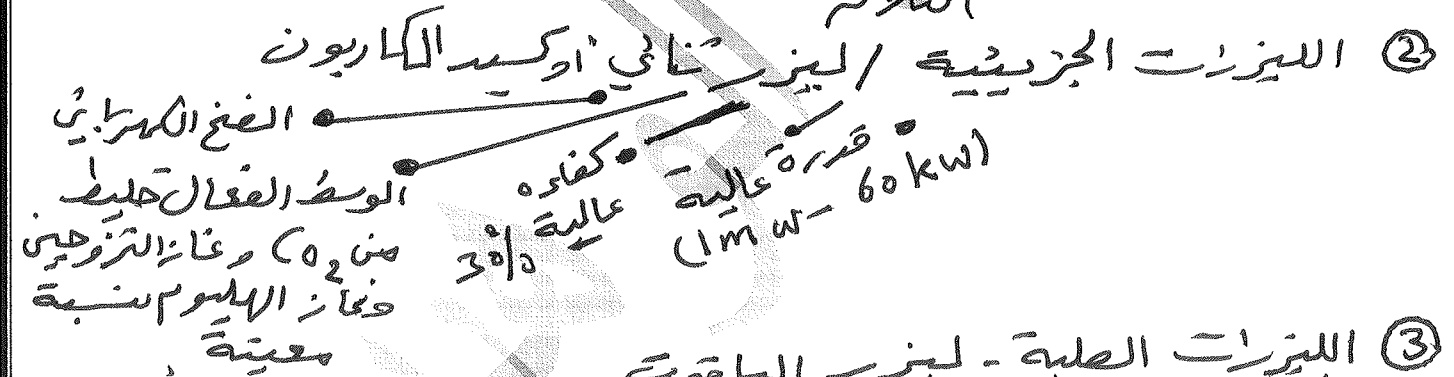 ② الليزرات الجزيئية / ليزر ثنائي أوكسيد الكاربون
الضخ الكهربائي
الوسط الفعال خليط
من CO2 وغاز النتروجين
وغاز الهليوم بنسبة
معينة
كفاءه
عالية
30%
قدرة عالية
(1mW - 60kW)
③ الليزرات الصلبة - ليزر الياقوت